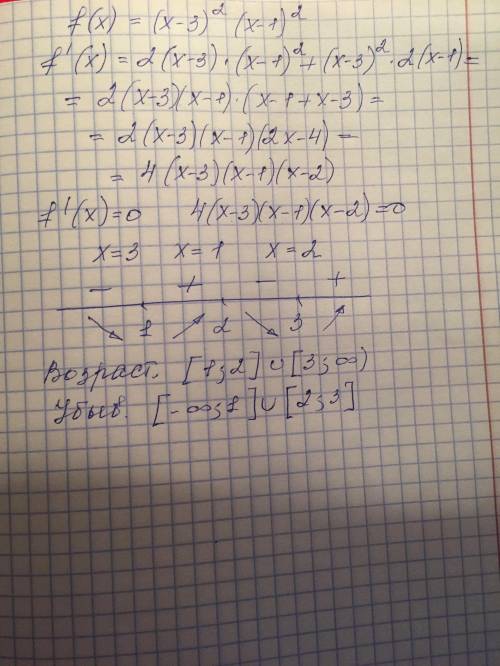 f(x) = (x-3)² (x-1)²
f'(x) = 2(x-3)·(x-1)²+(x-3)²·2(x-1)=
= 2(x-3)(x-1)·(x-1+x-3)=
= 2(x-3)(x-1)(2x-4) =
= 4(x-3)(x-1)(x-2)
f'(x)=0 4(x-3)(x-1)(x-2)=0
x=3 x=1 x=2
− + − +
1 2 3
Возраст. [1;2] ∪ [3;∞)
Убыв. [-∞;1] ∪ [2;3]